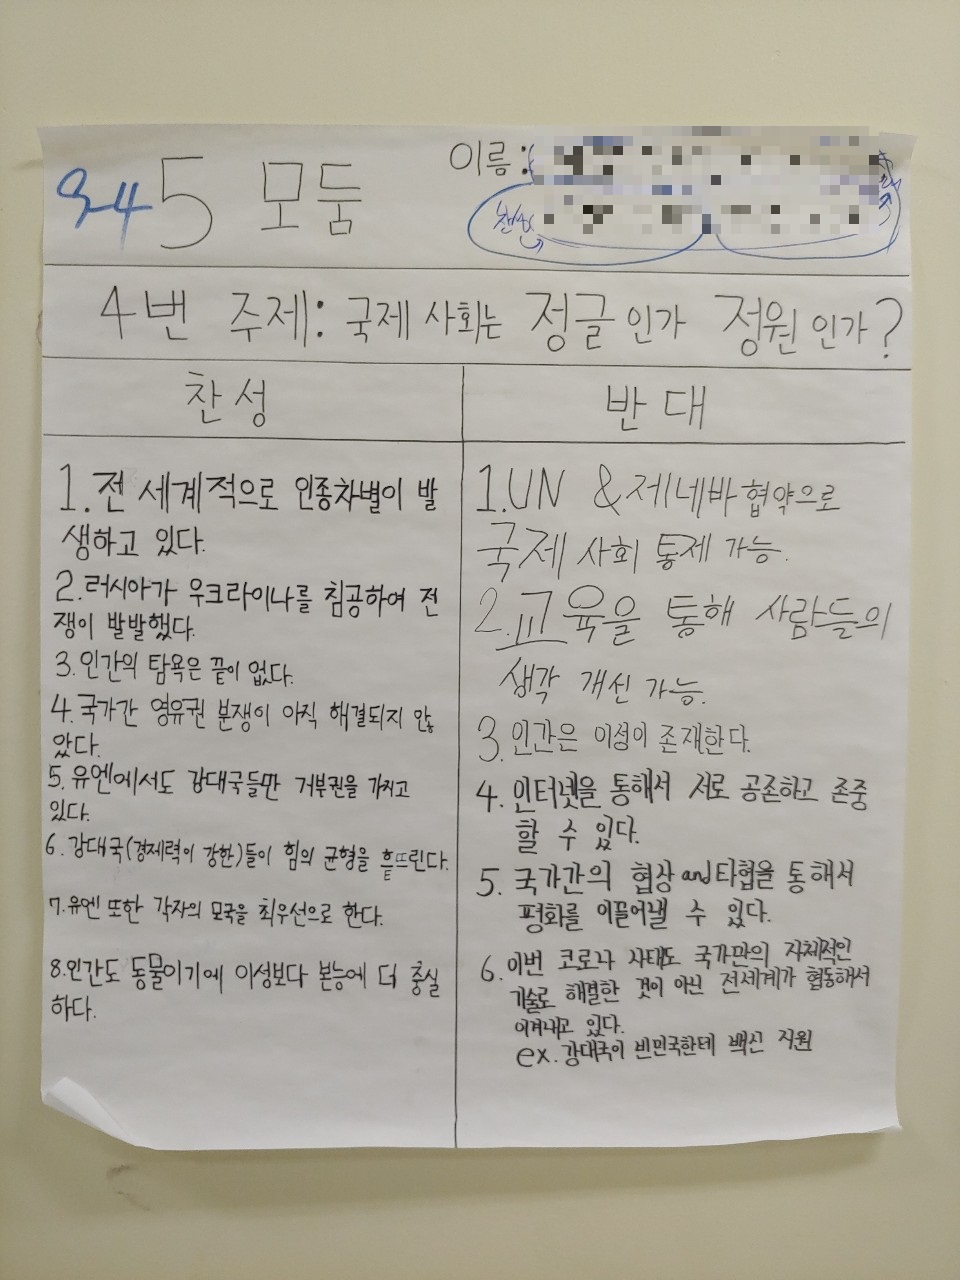 9-4 5 모둠
이름:
찬성
4번 주제: 국제 사회는 정글인가 정원인가?
찬성
1. 전 세계적으로 인종차별이 발
생하고 있다.
2. 러시아가 우크라이나를 침공하여 전
쟁이 발발했다.
3. 인간의 탐욕은 끝이 없다.
4. 국가간 영유권 분쟁이 아직 해결되지 않
았다.
5. 유엔에서도 강대국들만 거부권을 가지고
있다.
6. 강대국(경제력이 강한)들이 힘의 균형을 흩뜨린다.
7. 유엔 또한 각자의 모국을 최우선으로 한다.
8. 인간도 동물이기에 이성보다 본능에 더 충실
하다.
반대
1. UN & 제네바 협약으로
국제 사회 통제 가능.
2. 교육을 통해 사람들의
생각 개선 가능.
3. 인간은 이성이 존재한다.
4. 인터넷을 통해서 서로 공존하고 존중
할 수 있다.
5. 국가간의 협상 and 타협을 통해서
평화를 이끌어낼 수 있다.
6. 이번 코로나 사태도 국가만의 자체적인
기술로 해결한 것이 아닌 전세계가 협동해서
이겨내고 있다.
ex. 강대국이 빈민국한테 백신 지원